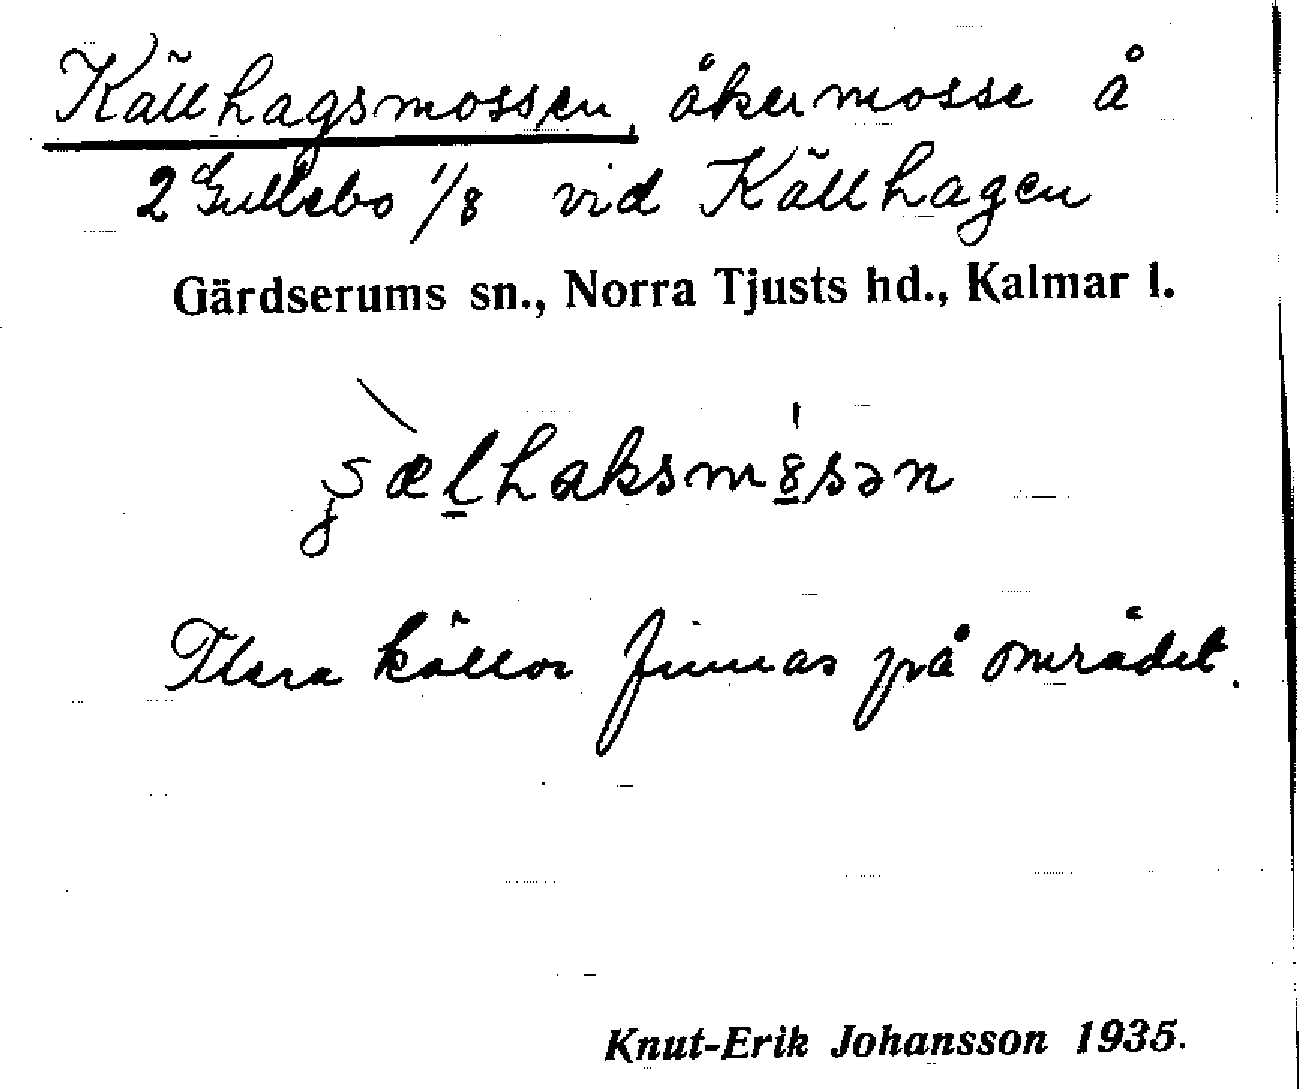 Källhagsmossen, åkermosse å
2 Gullebo 1/8 vid Källhagen
Gärdserums sn., Norra Tjusts hd., Kalmar l.
Flera källor finnas på området.
Knut-Erik Johansson 1935.